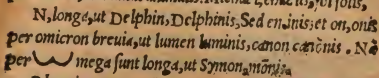 N, longa, ut Delphin, Delphinis, Sed en, inis, et on, onis
per omicron breuia, ut lumen luminis, canon canŏnis. Nā
per ω mega sunt longa, ut Symon, mōnis,